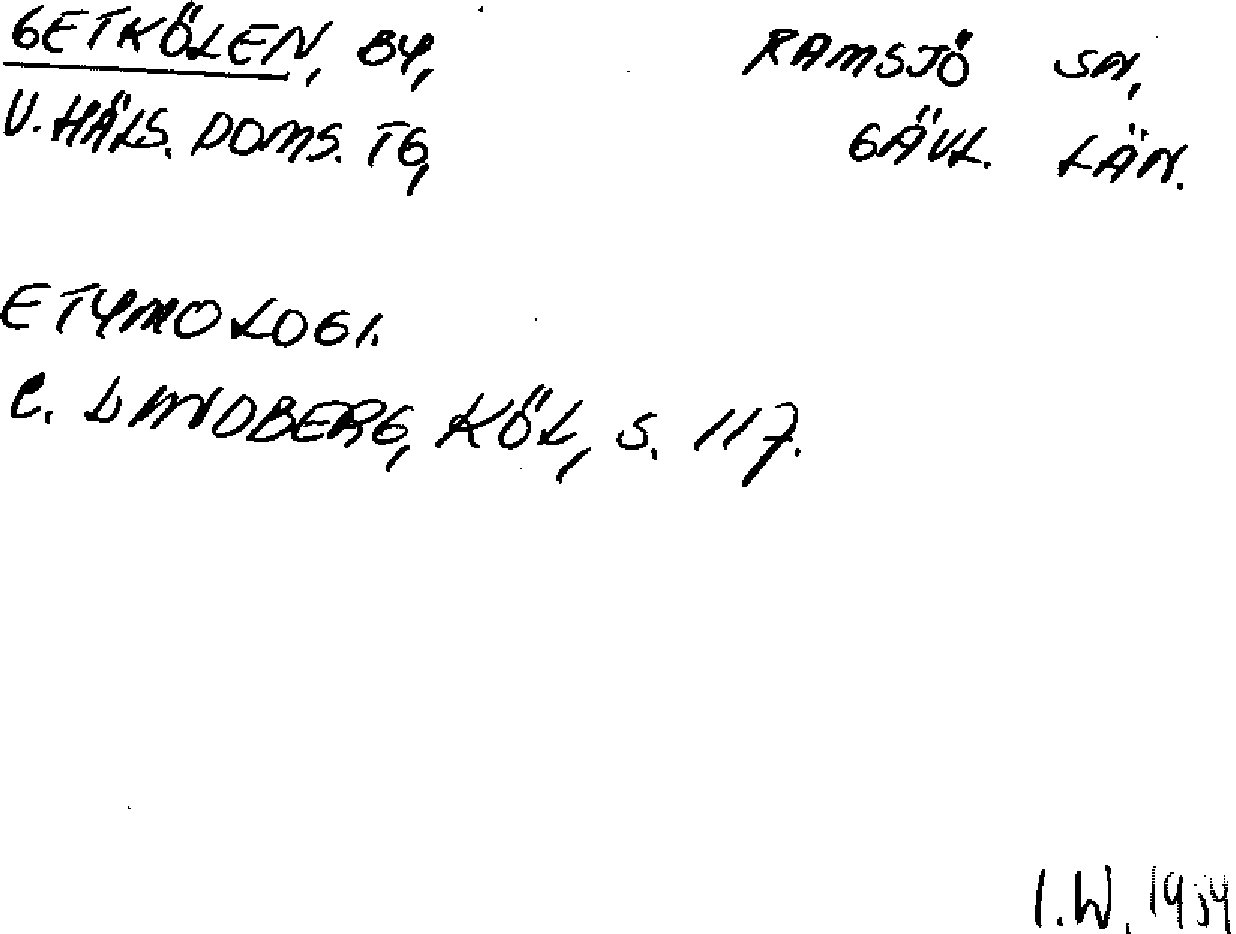 GETKÖLEN, BY, RAMSJÖ SN,
V. HÄLS. DOMS. TG, GÄVL. LÄN.
ETYMOLOGI.
C. LINDBERG, KÖL, S. 117.
I.W. 1954